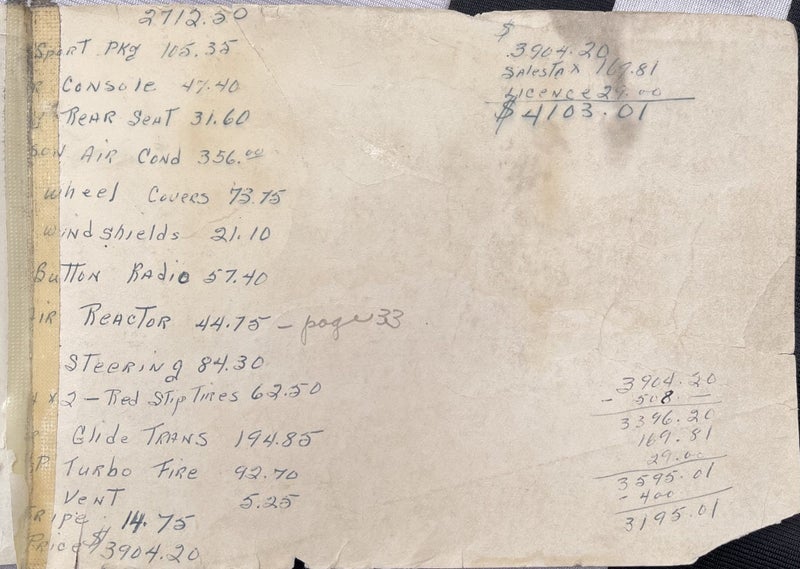 2712.50
Sport Pkg 105.35
Console 47.40
Rear Seat 31.60
son Air Cond 356.00
wheel Covers 73.75
windshields 21.10
Button Radio 57.40
ir Reactor 44.75 - page 33
Steering 84.30
x 2 - Red Stip Tires 62.50
Glide Trans 194.85
P Turbo Fire 92.70
Vent 5.25
ripe 14.75
Price $3904.20
$
3904.20
Sales Tax 169.81
Licence 29.00
$4103.01
3904.20
- 508 -
3396.20
169.81
29.00
3595.01
- 400
3195.01